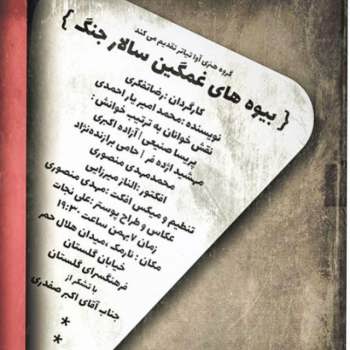 گروه هنری آوا تیاتر تقدیم می کند
{ بیوه های غمگین سالار جنگ }
کارگردان : رضا تفکری
نویسنده : محمد امیر یار احمدی
نقش خوانان به ترتیب خوانش :
پریسا صنیعی | آزاده اکبری
مهشید اژده فر | حامی برازنده نژاد
محمدمهدی منصوری
افکتور : الناز میرزایی
تنظیم و میکس افکت : مهدی منصوری
عکاس و طراح پوستر : علی نجات
زمان ۷ بهمن ساعت ۱۹:۳۰
مکان : نارمک ، میدان هلال احمر
خیابان گلستان
فرهنگسرای گلستان
با تشکر از
جناب آقای اکبر صفدری
*
*